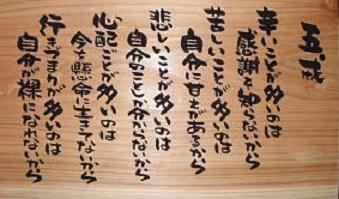 五戒
辛いことが多いのは
感謝を知らないから
苦しいことが多いのは
自分に甘えがあるから
悲しいことが多いのは
自分のことが分からないから
心配ことが多いのは
今を懸命に生きてないから
行きづまりが多いのは
自分が裸になれないから